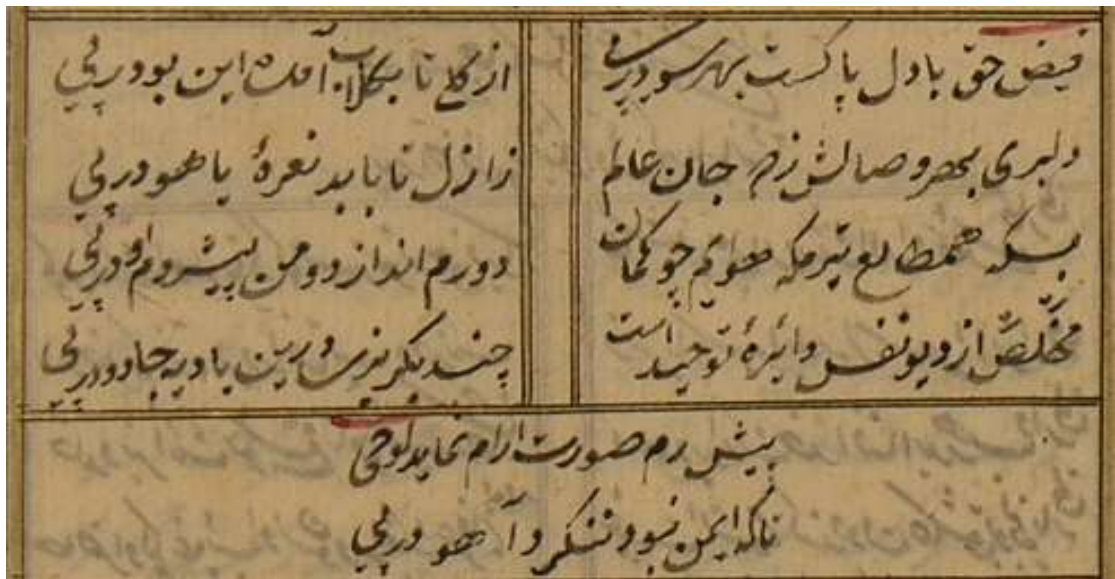 فیض حق با دل پاکست بهر سو در پی
از گلے تا بگلاب آمده این بو در پی
دلبری بحر وصالش زده جان عالم
ز ازل تا بابد نعرهٔ یا هو در پی
بسکه همطالع تیرم که هوایم چو کمان
دورم اندازد و من پیشروم او در پی
مخلص از دیو نفس دائرهٔ توحید است
چند بگریزی درین بادیه جادو در پی
پیش رم صورت آرام نماید لوحی
تا که ایمن نبود ننگرد آهو در پی